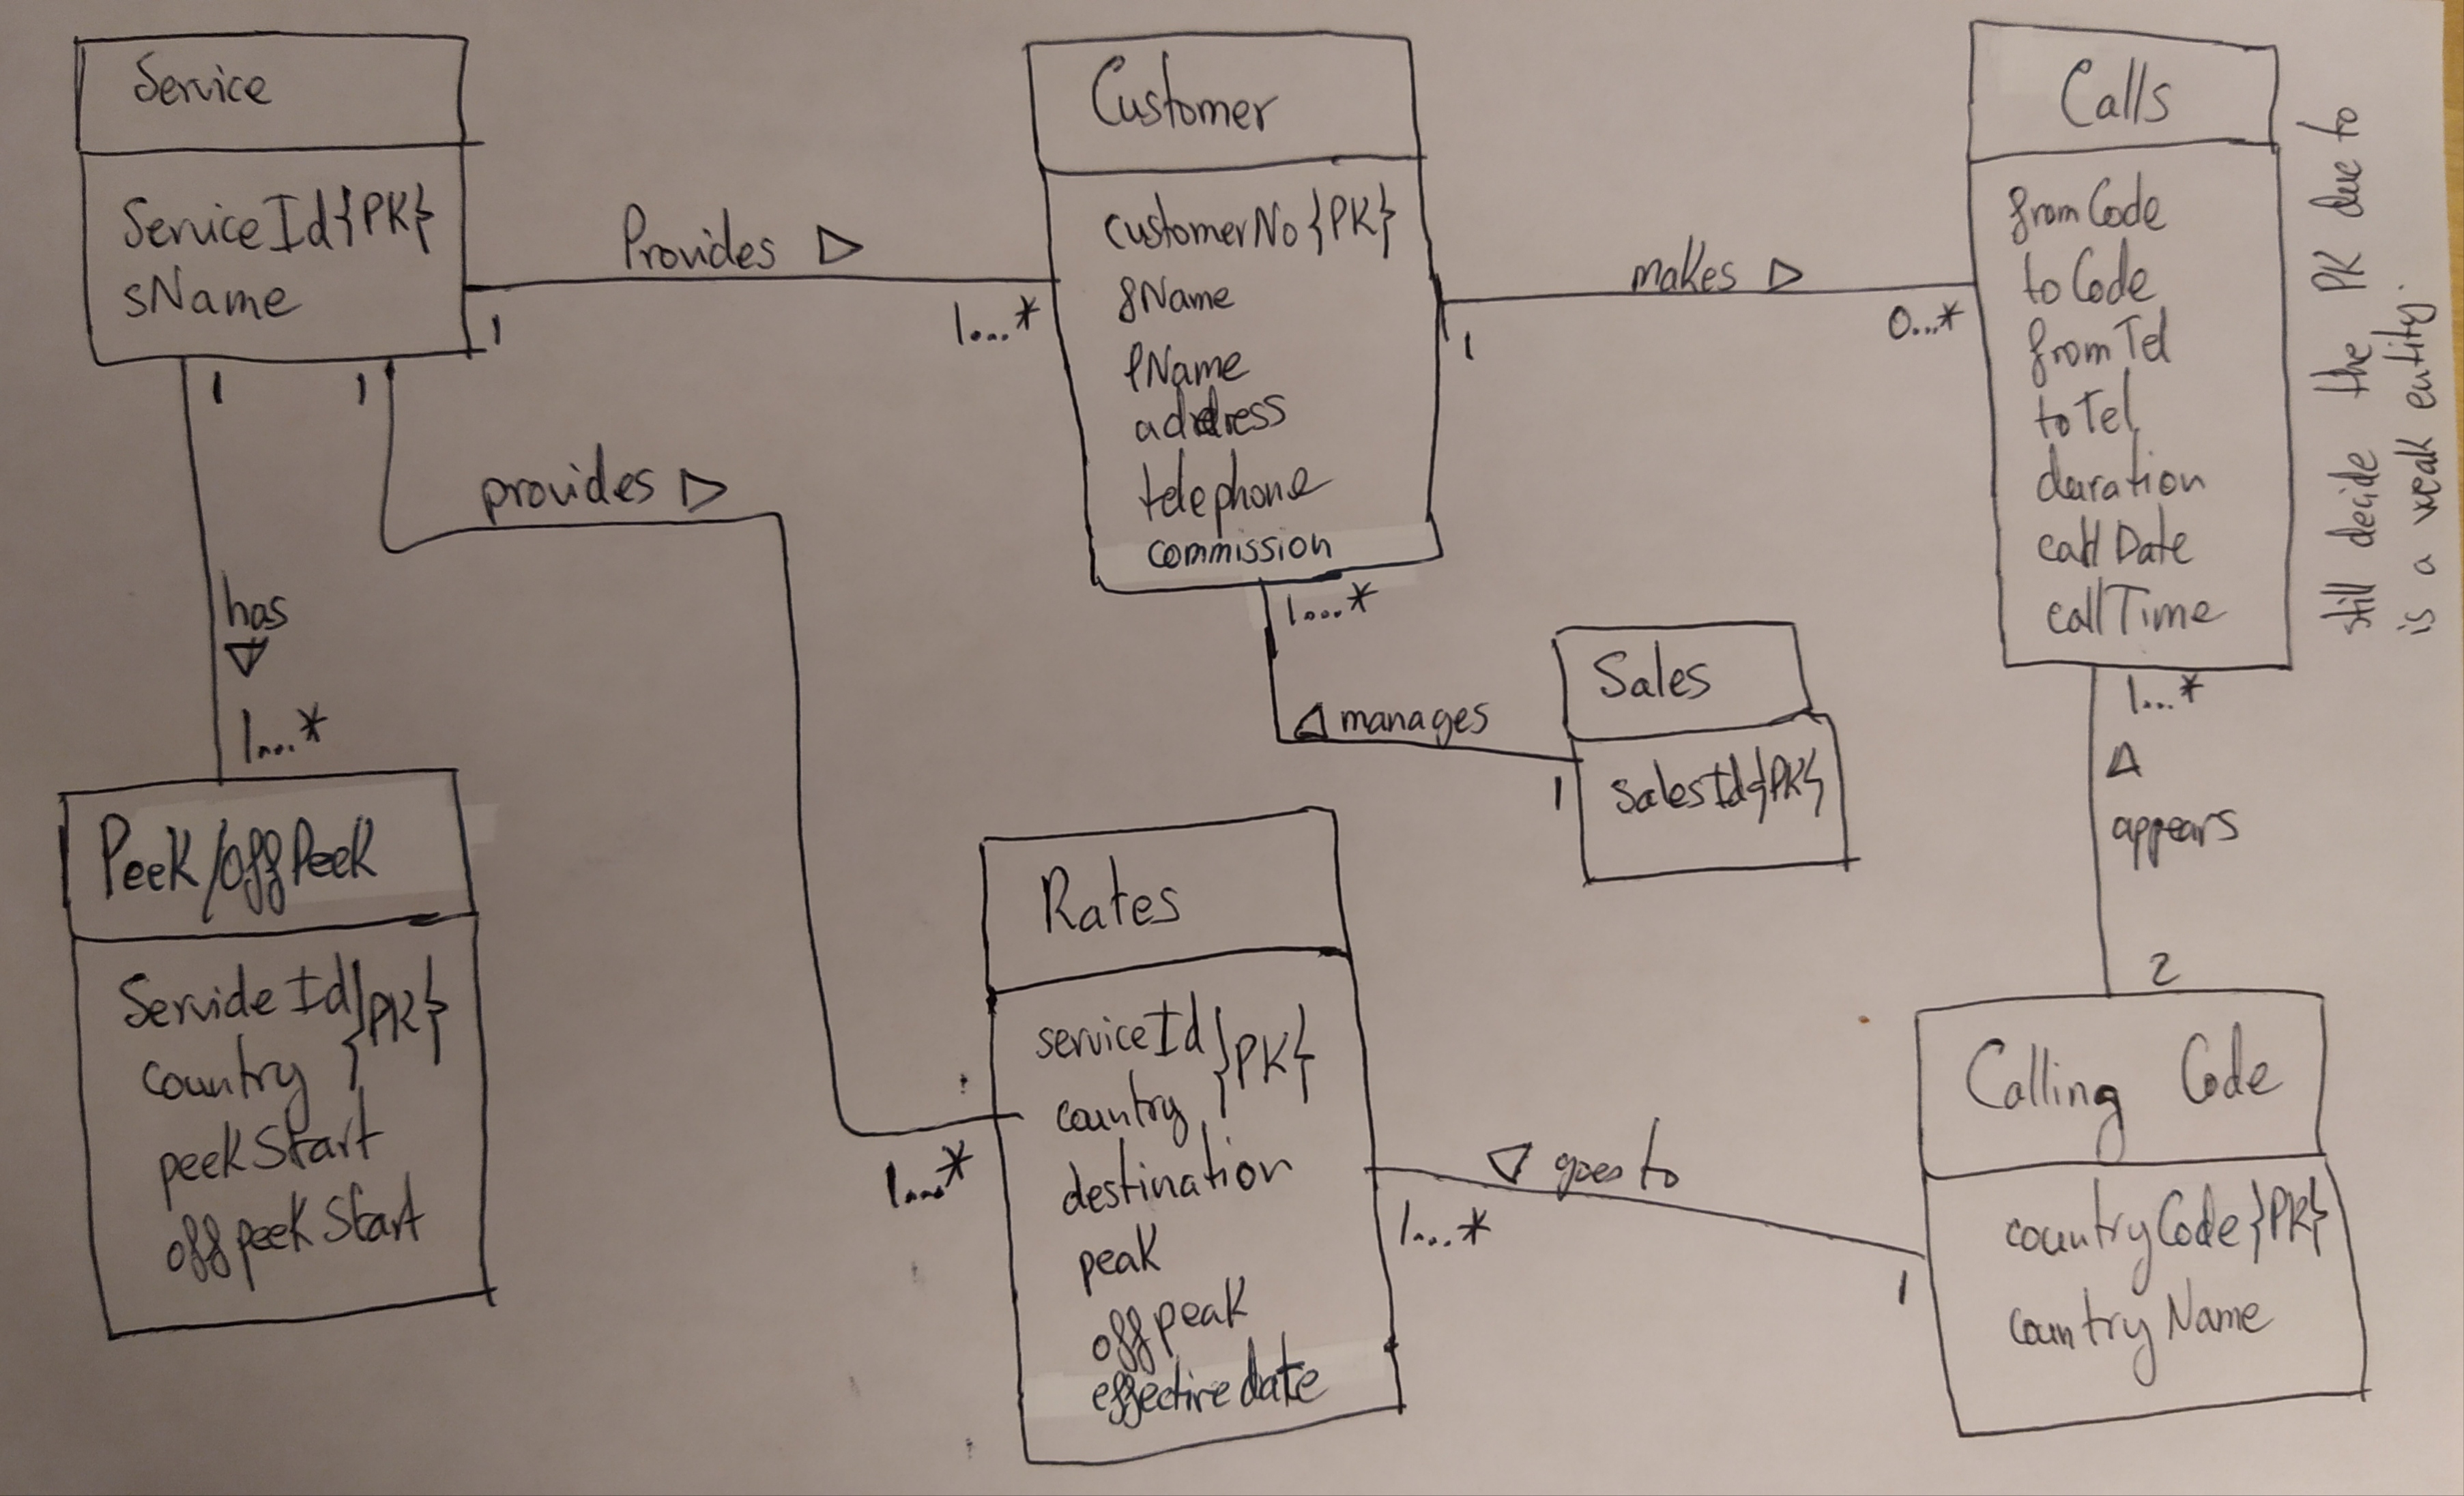 Service
ServiceId{PK}
sName
1
1
1
Provides
1...*
Customer
customerNo{PK}
fName
lName
address
telephone
commission
1
makes
0...*
Calls
fromCode
toCode
fromTel
toTel
duration
callDate
callTime
still decide the PK due to
is a weak entity.
provides
1...*
has
1...*
Peek/offPeek
ServideId }PK}
country
peekStart
offpeekStart
1...*
manages
1
Sales
salesId{PK}
Rates
serviceId }PK}
country
destination
peak
offpeak
effective date
1...*
appears
2
1...*
goes to
1
Calling Code
countryCode}PK}
countryName